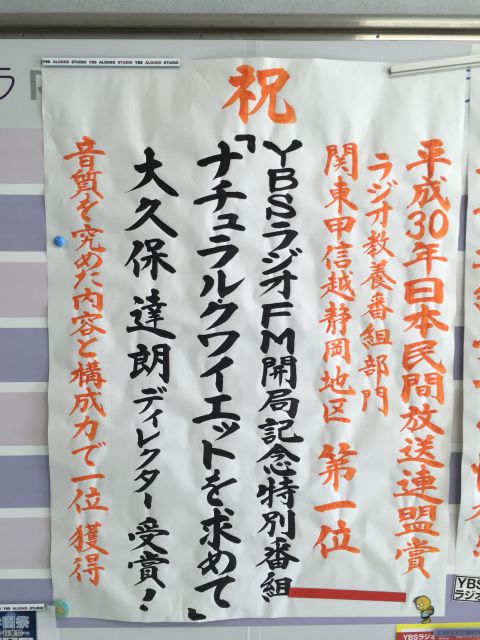 祝
平成30年日本民間放送連盟賞
ラジオ教養番組部門
関東甲信越静岡地区 第一位
YBSラジオFM開局記念特別番組
「ナチュラル・クワイエットを求めて」
大久保 達朗 ディレクター 受賞!
音質を究めた内容と構成力で一位 獲得
YBS ALOOKS STUDIO YBS ALOOKS STUDIO YBS ALOOKS STUDIO
YBS
ラジオ
YBSラジオ